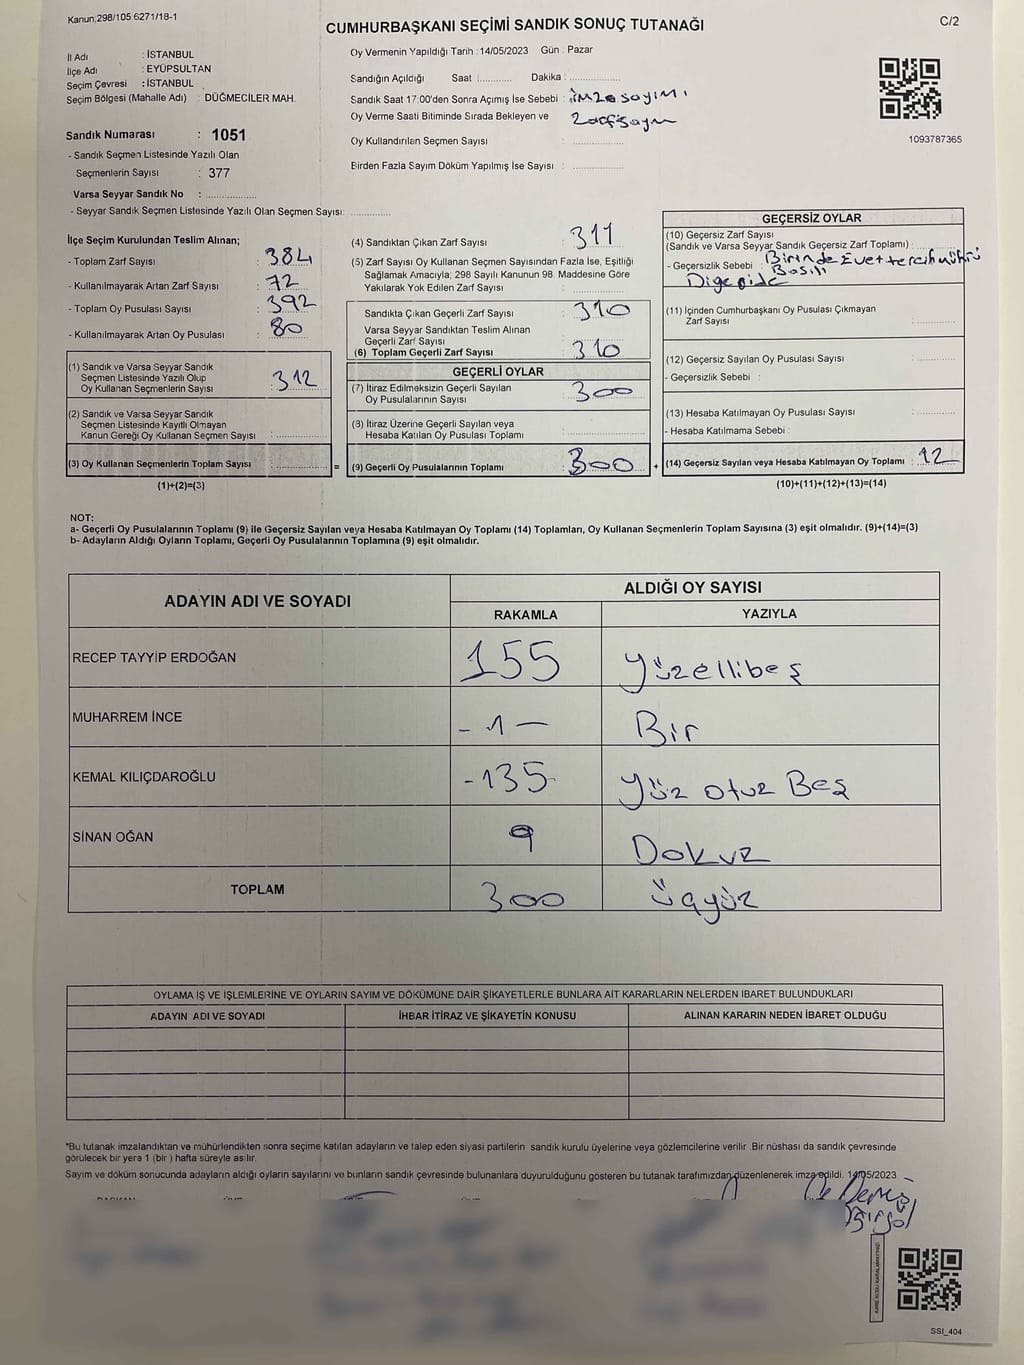 Kanun;298/105 6271/18-1
CUMHURBAŞKANI SEÇİMİ SANDIK SONUÇ TUTANAĞI
C/2
İl Adı : İSTANBUL
İlçe Adı : EYÜPSULTAN
Seçim Çevresi : İSTANBUL
Seçim Bölgesi (Mahalle Adı) : DÜĞMECİLER MAH.
Sandık Numarası : 1051
- Sandık Seçmen Listesinde Yazılı Olan
Seçmenlerin Sayısı : 377
Varsa Seyyar Sandık No :
- Seyyar Sandık Seçmen Listesinde Yazılı Olan Seçmen Sayısı:
Oy Vermenin Yapıldığı Tarih : 14/05/2023 Gün : Pazar
Sandığın Açıldığı Saat : Dakika :
Sandık Saat 17:00'den Sonra Açımış İse Sebebi : imza sayımı
Oy Verme Saati Bitiminde Sırada Bekleyen ve Zarf sayım
Oy Kullandırılan Seçmen Sayısı :
Birden Fazla Sayım Döküm Yapılmış İse Sayısı :
1093787365
İlçe Seçim Kurulundan Teslim Alınan;
- Toplam Zarf Sayısı : 384
- Kullanılmayarak Artan Zarf Sayısı : 72
- Toplam Oy Pusulası Sayısı : 392
- Kullanılmayarak Artan Oy Pusulası : 80
(1) Sandık ve Varsa Seyyar Sandık
Seçmen Listesinde Yazılı Olup
Oy Kullanan Seçmenlerin Sayısı : 312
(2) Sandık ve Varsa Seyyar Sandık
Seçmen Listesinde Kayıtlı Olmayan
Kanun Gereği Oy Kullanan Seçmen Sayısı :
(3) Oy Kullanan Seçmenlerin Toplam Sayısı :
(1)+(2)=(3)
(4) Sandıktan Çıkan Zarf Sayısı : 311
(5) Zarf Sayısı Oy Kullanan Seçmen Sayısından Fazla İse, Eşitliği
Sağlamak Amacıyla; 298 Sayılı Kanunun 98. Maddesine Göre
Yakılarak Yok Edilen Zarf Sayısı :
Sandıkta Çıkan Geçerli Zarf Sayısı : 310
Varsa Seyyar Sandıktan Teslim Alınan
Geçerli Zarf Sayısı :
(6) Toplam Geçerli Zarf Sayısı : 310
GEÇERLİ OYLAR
(7) İtiraz Edilmeksizin Geçerli Sayılan
Oy Pusulalarının Sayısı : 300
(8) İtiraz Üzerine Geçerli Sayılan veya
Hesaba Katılan Oy Pusulası Toplamı :
= (9) Geçerli Oy Pusulalarının Toplamı : 300 +
GEÇERSİZ OYLAR
(10) Geçersiz Zarf Sayısı
(Sandık ve Varsa Seyyar Sandık Geçersiz Zarf Toplamı) :
- Geçersizlik Sebebi : Birinde Evet tercih mührü
Basılı
(11) İçinden Cumhurbaşkanı Oy Pusulası Çıkmayan
Zarf Sayısı :
(12) Geçersiz Sayılan Oy Pusulası Sayısı :
- Geçersizlik Sebebi :
(13) Hesaba Katılmayan Oy Pusulası Sayısı :
- Hesaba Katılmama Sebebi :
(14) Geçersiz Sayılan veya Hesaba Katılmayan Oy Toplamı : 12
(10)+(11)+(12)+(13)=(14)
NOT:
a- Geçerli Oy Pusulalarının Toplamı (9) ile Geçersiz Sayılan veya Hesaba Katılmayan Oy Toplamı (14) Toplamları, Oy Kullanan Seçmenlerin Toplam Sayısına (3) eşit olmalıdır. (9)+(14)=(3)
b- Adayların Aldığı Oyların Toplamı, Geçerli Oy Pusulalarının Toplamına (9) eşit olmalıdır.
ADAYIN ADI VE SOYADI ALDIĞI OY SAYISI
RAKAMLA YAZIYLA
RECEP TAYYİP ERDOĞAN 155 Yüzellibeş
MUHARREM İNCE - 1 - Bir
KEMAL KILIÇDAROĞLU -135- Yüz otuz Beş
SİNAN OĞAN 9 Dokuz
TOPLAM 300 üçyüz
OYLAMA İŞ VE İŞLEMLERİNE VE OYLARIN SAYIM VE DÖKÜMÜNE DAİR ŞİKAYETLERLE BUNLARA AİT KARARLARIN NELERDEN İBARET BULUNDUKLARI
ADAYIN ADI VE SOYADI İHBAR İTİRAZ VE ŞİKAYETİN KONUSU ALINAN KARARIN NEDEN İBARET OLDUĞU
*Bu tutanak imzalandıktan ve mühürlendikten sonra seçime katılan adayların ve talep eden siyasi partilerin sandık kurulu üyelerine veya gözlemcilerine verilir. Bir nüshası da sandık çevresinde
görülecek bir yere 1 (bir ) hafta süreyle asılır.
Sayım ve döküm sonucunda adayların aldığı oyların sayılarını ve bunların sandık çevresinde bulunanlara duyurulduğunu gösteren bu tutanak tarafımızdan düzenlenerek imza edildi. 14/05/2023
SSI_404